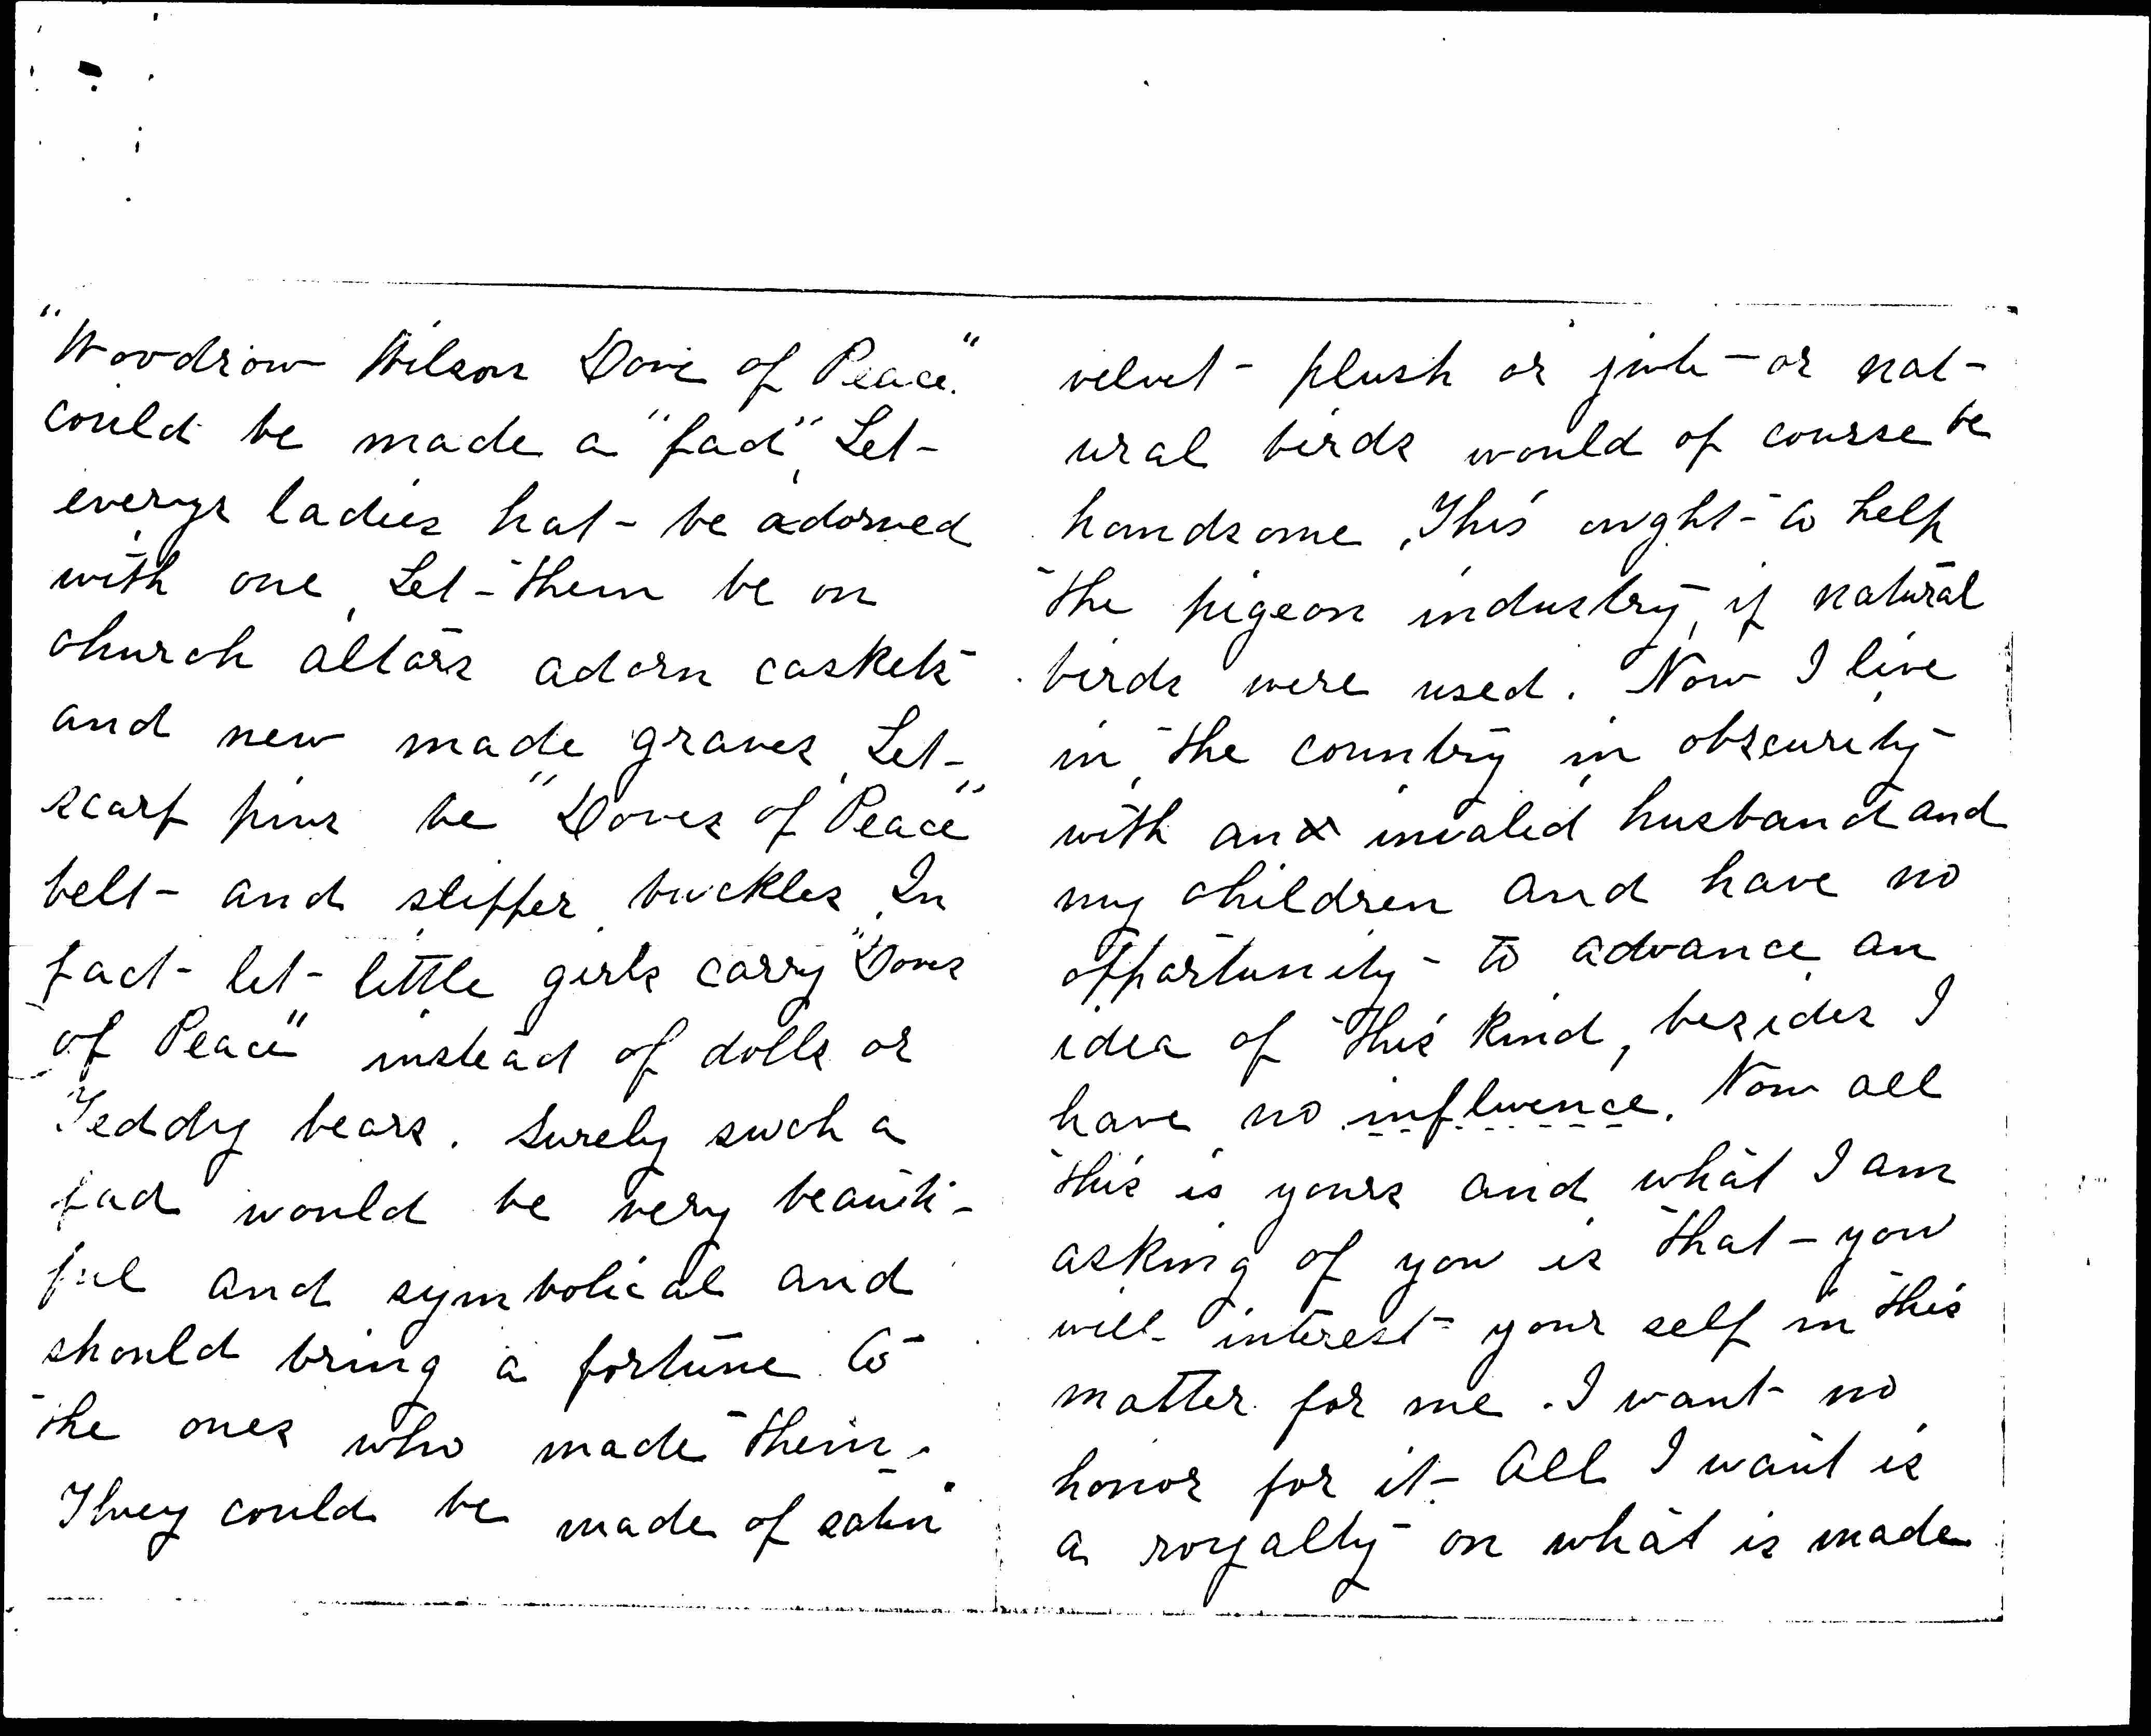 "Woodrow Wilson Dove of Peace."
could be made a "fad", Let
everys ladies hat be adorned
with one, Let them be on
church altars adorn caskets
and new made graves, Let
scarf pins be "Doves of Peace"
belt and slipper buckles, In
fact let little girls carry "Doves
of Peace" instead of dolls or
Teddy bears. Surely such a
fad would be very beauti-
ful and symbolical and
should bring a fortune to
the ones who made them.
They could be made of satin
velvet plush or jute or nat-
ural birds would of course be
handsome, This ought to help
the pigeon industry, if natural
birds were used. Now I live
in the country in obscurity
with an invalid husband and
my children and have no
opportunity to advance an
idea of this kind, besides I
have no influence. Now all
this is yours and what I am
asking of you is that you
will interest your self in this
matter for me. I want no
honor for it. All I want is
a royalty on what is made